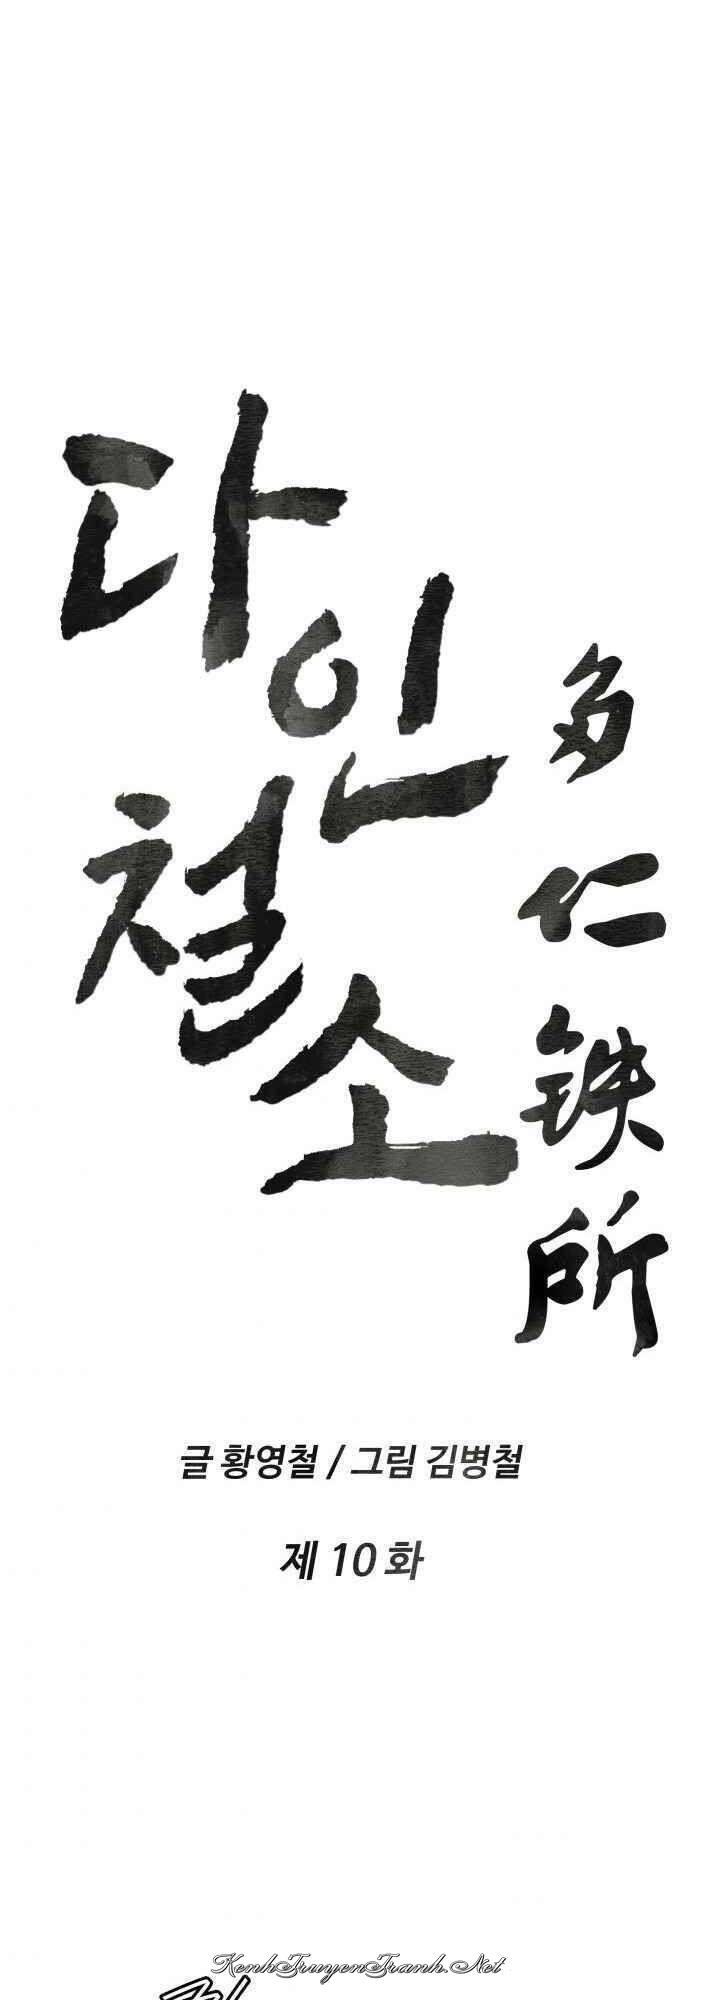 다인
철소
多仁鉄所
글 황영철 / 그림 김병철
제 10 화
KenhTruyenTranh.Net